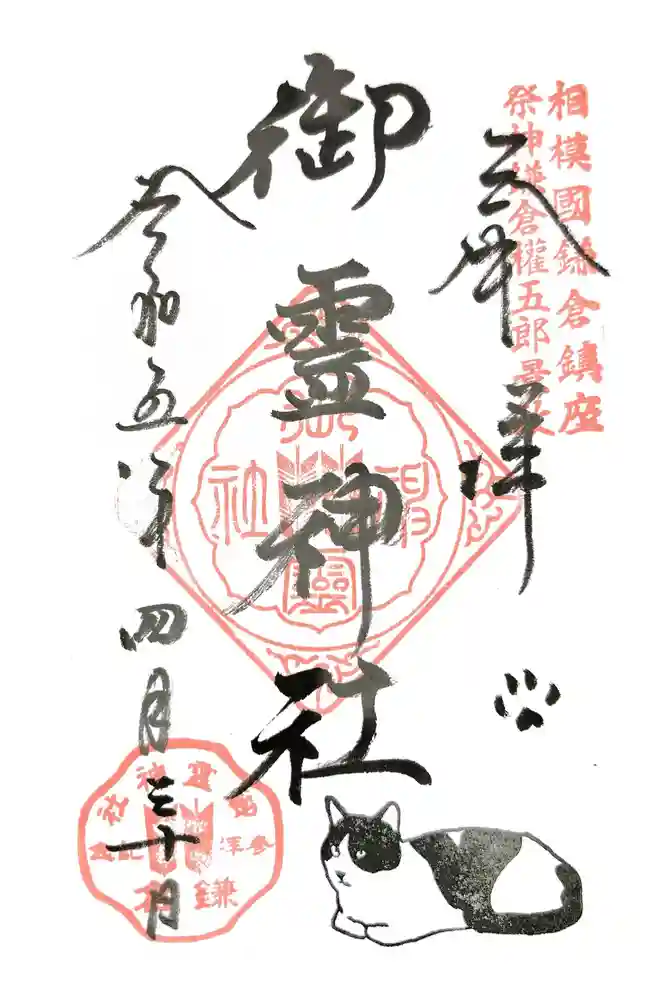 相模國鎌倉鎮座
祭神鎌倉權五郎景政
奉拝
御霊神社
令和五年四月三十日
御靈神社
御靈神社
参拝記念
鎌倉